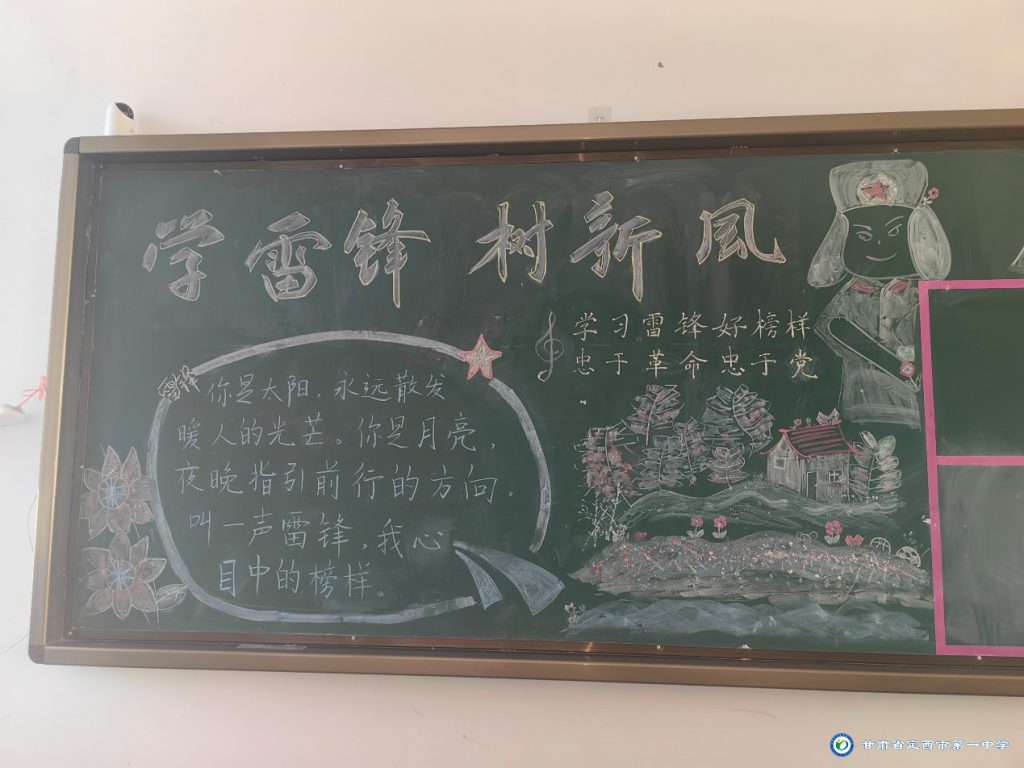 学雷锋 树新風
学习雷锋好榜样
忠于革命忠于党
你是太阳，永远散发
暖人的光芒。你是月亮，
夜晚指引前行的方向。
叫一声雷锋，我心
目中的榜样。
甘肃省定西市第一中学